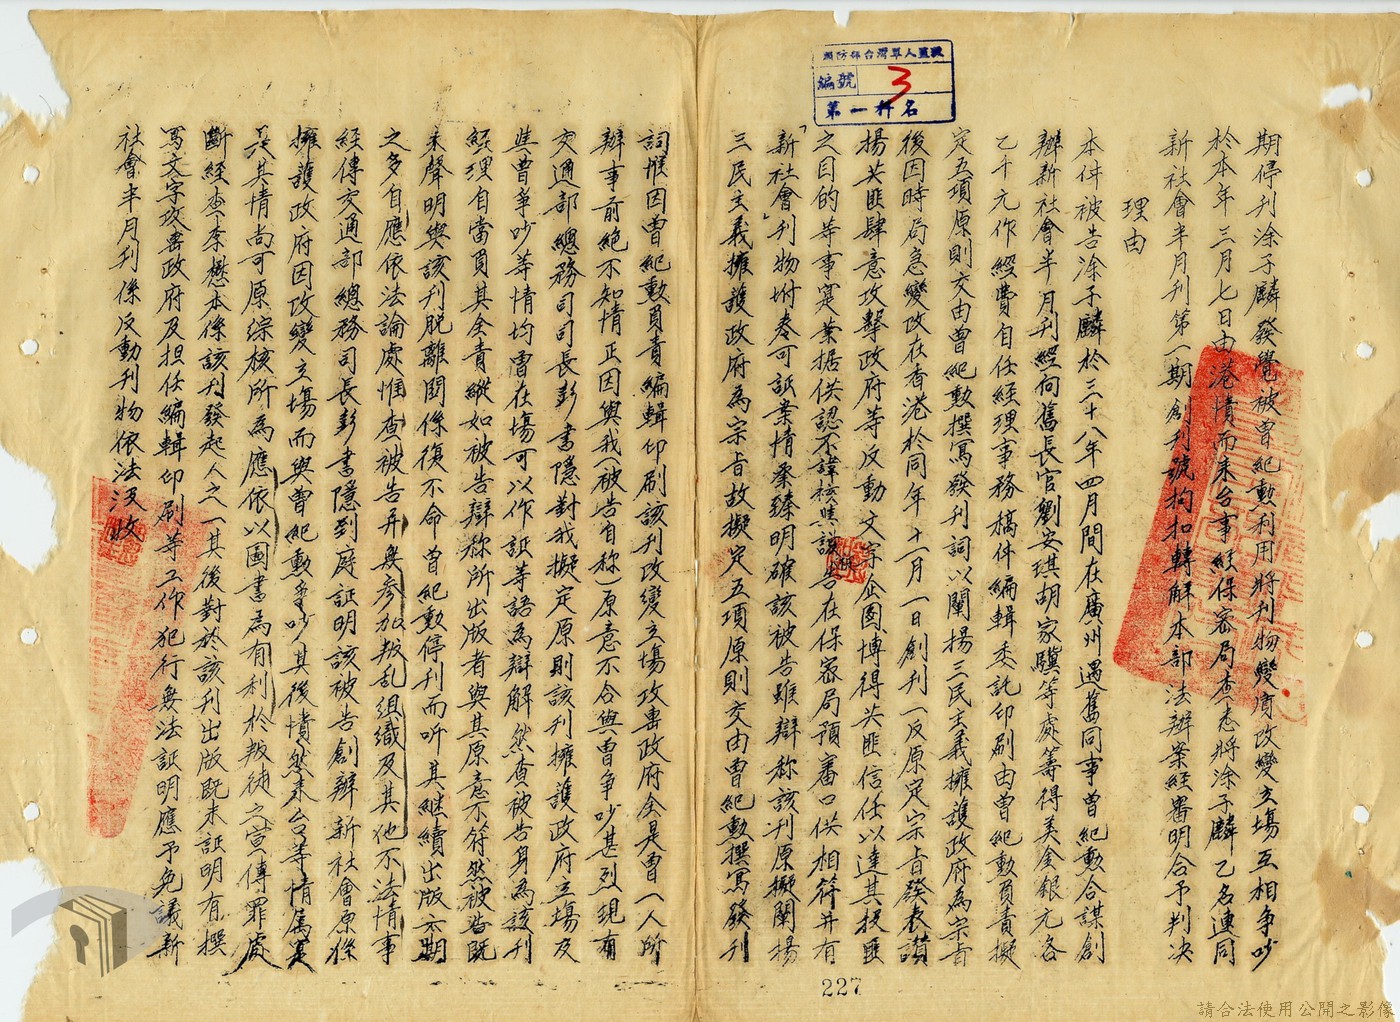 編號 3
第一科名
期停刊涂子麟發覺被曾紀勳利用將刊物變質改變立場互相爭吵
於本年三月七日由港憤而来台事経保密局查悉將涂子麟乙名連同
新社會半月刊第一期創刊號拘扣轉解本部法辦案経審明合予判决
理由
本件被告涂子麟於三十八年四月間在廣州遇舊同事曾紀勳合謀創
辦新社會半月刊経向舊長官劉安琪胡家驥等處籌得美金銀元各
乙千元作經費自任經理事務稿件編輯委託印刷由曾紀勳負責擬
定五項原則交由曾紀勳撰寫發刊詞以闡揚三民主義擁護政府為宗旨
後因時局急變改在香港於同年十一月一日創刊一反原定宗旨發表讚
揚共匪肆意攻擊政府等反動文字企圖博得共匪信任以達其投匪
之目的等事寔業据供認不諱核與該告在保密局預審口供相符并有
「新社會」刊物坿卷可証案情臻明確該被告雖辯称該刊原擬闡揚
三民主義擁護政府為宗旨故擬定五項原則交由曾紀勳撰寫發刊
詞惟因曾紀勳負責編輯印刷該刊改變立場攻击政府全是曾一人所
辦事前絕不知情正因與我(被告自称)原意不合與曾爭吵甚烈現有
交通部總務司司長彭書隱對我擬定原則該刊擁護政府立場及
與曾爭吵等情均曾在場可以作証等語為辯解然查被告身為該刊
経理自當負其全責縱如被告辯称所出版者與其原意不符然被告既
未聲明與該刊脱離関係復不命曾紀勳停刊而听其継續出版六期
之多自應依法論處惟查被告并無參加叛乱組織及其他不法情事
経傳交通部總務司長彭書隱到庭証明該被告創辦新社會原係
擁護政府因改變立場而與曾紀勳爭吵其後憤然来台等情属寔
其情尚可原綜核所為應依以圖書為有利於叛徒之宣傳罪處
斷経查李懋本係該刊發起人之一其後對於該刊出版既未証明有撰
寫文字攻击政府及担任編輯印刷等工作犯行無法証明應予免議新
社會半月刊係反動刊物依法没收
227
請合法使用公開之影像